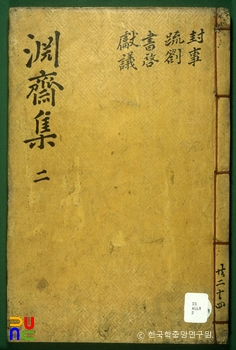 淵齋集 二
封事
疏劄
書啓
獻議
共二十四
© 한국학중앙연구원